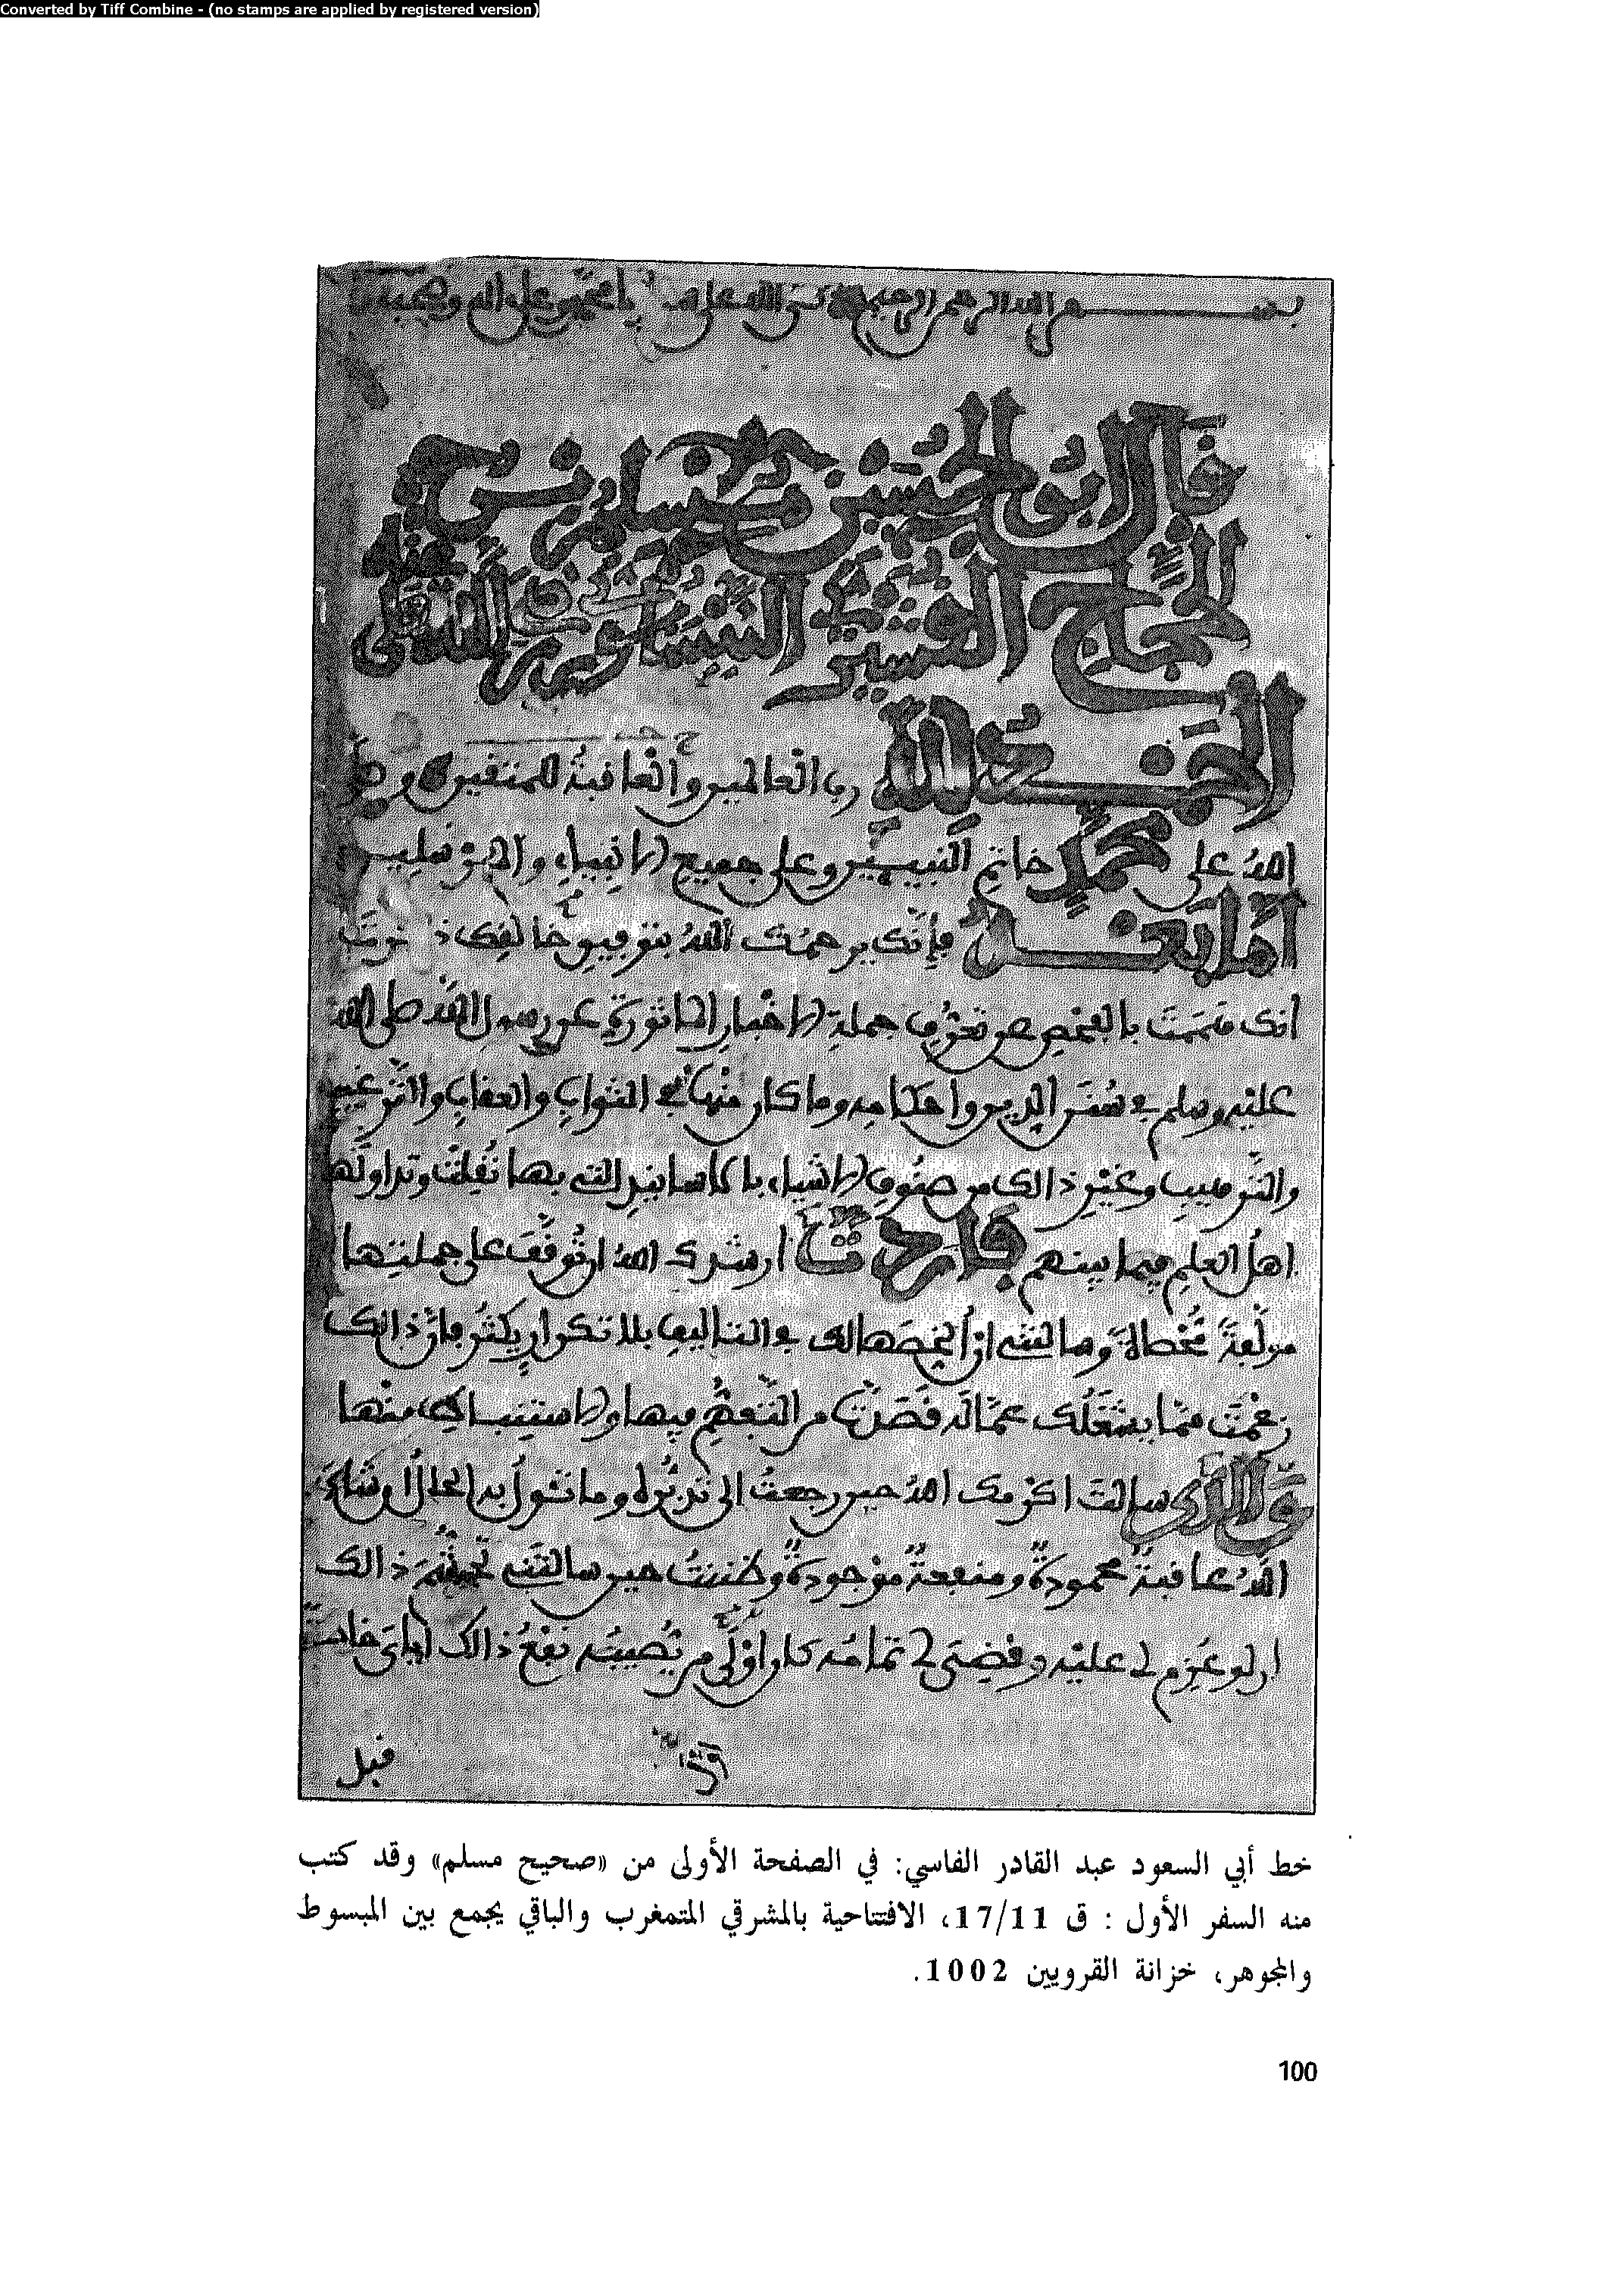 Converted by Tiff Combine - (no stamps are applied by registered version)
بسم الله الرحمن الرحيم صلى الله على محمد وعلى آله وصحبه
قال ابو الحسين مسلم بن
الحجاج القشيري النيسابوري رحمه الله
الحمد لله رب العالمين والعاقبة للمتقين وصلى
الله على محمد خاتم النبيين وعلى جميع الانبياء والمرسلين
اما بعد فإنك يرحمك الله بتوفيق خالقك ذكرت
أنك هممت بالفحص عن تعرف جملة الاخبار الماثورة عن رسول الله صلى الله
عليه وسلم في سنن الدين واحكامه وما كان منها في الثواب والعقاب والترغيب
والترهيب وغير ذالك من صنوف الاشياء بالاسانيد التي بها نقلت وتداولها
اهل العلم فيما بينهم فاردت ارشدك الله ان توقف على جملتها
مولفة محصاة وسالتني ان الخصها لك في التاليف بلا تكرار يكثر فان ذالك
زعمت مما يشغلك عما له قصدت من التفهم فيها والاستنباط منها
وللذي سالت اكرمك الله حين رجعت الى تدبره وما تئول به الحال ان شاء
الله عاقبة محمودة ومنفعة موجودة وظننت حين سالتني تجشم ذالك
ان لو عزم لي عليه وقضي لي تمامه كان اول من يصيبه نفع ذالك اياي خاصة
قبل
خط أبي السعود عبد القادر الفاسي: في الصفحة الأولى من «صحيح مسلم» وقد كتب
منه السفر الأول : ق 17/11، الافتتاحية بالمشرقي المتمغرب والباقي يجمع بين المبسوط
والمجوهر، خزانة القرويين 1002.
100